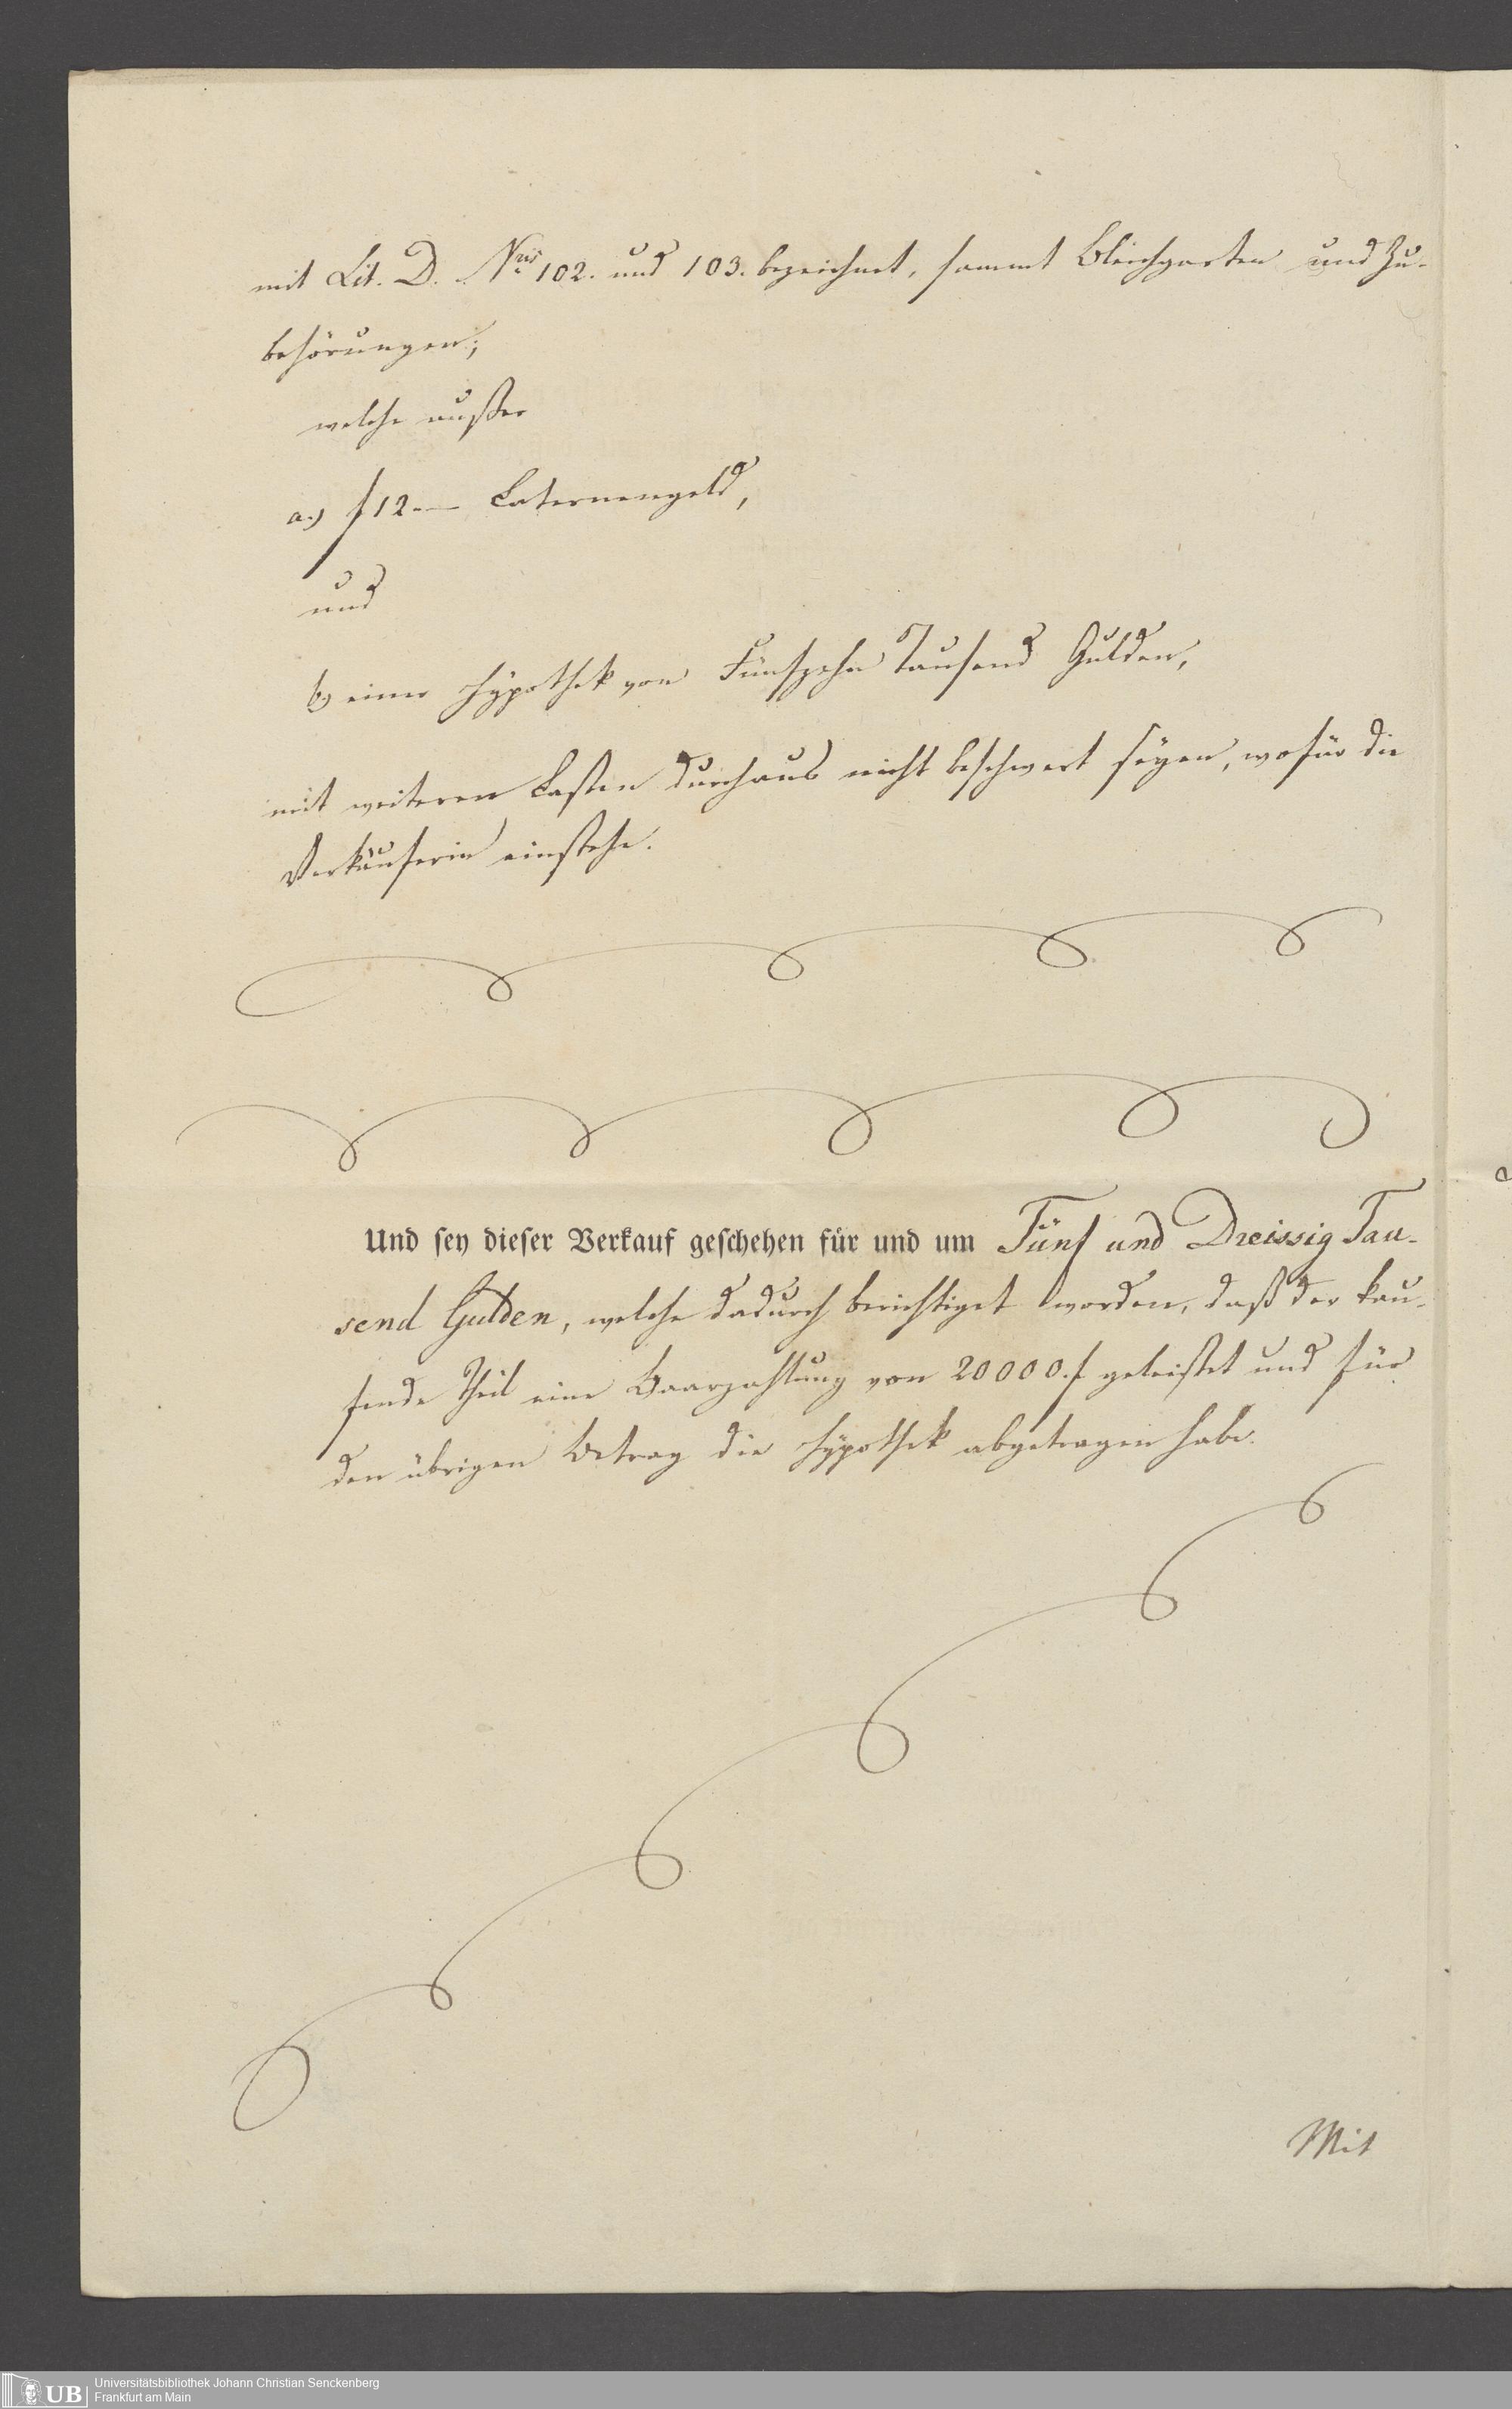 mit Lit. D. Nris 102. und 103. bezeichnet, sammt Bleichgarten und Zu-
behörungen;
welche außer
a.) f 12.— Laternengeld,
und
b.) einer Hÿpothek von Fünfzehn Tausend Gulden,
mit weiteren Lasten durchaus nicht beschwert seÿen, wofür die
Verkäuferin einstehe.
Und ſey dieſer Verkauf geſchehen für und um Fünf und Dreissig Tau-
send Gulden, welche dadurch berichtiget worden, daß der kau-
fende Theil eine Baarzahlung von 20000. f geleistet und für
den übrigen Betrag die Hÿpothek abgetragen habe.
Mit
UB Universitätsbibliothek Johann Christian Senckenberg
Frankfurt am Main